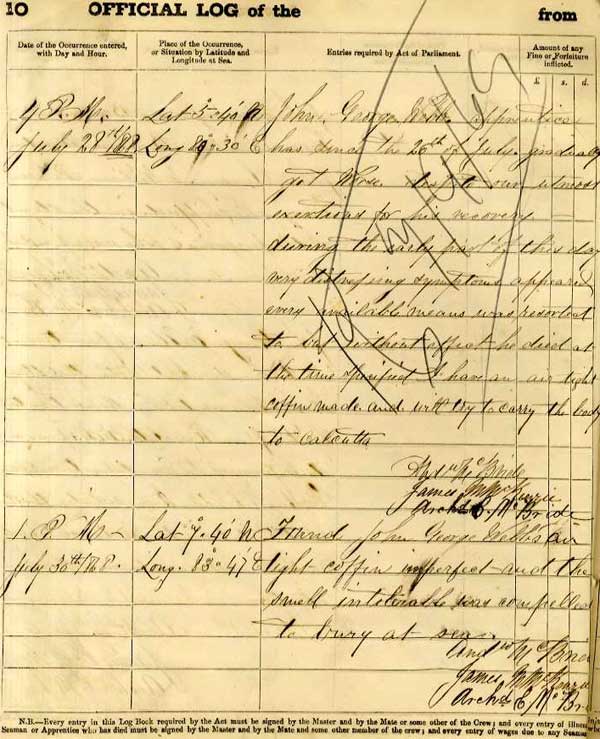 10 OFFICIAL LOG of the from
Date of the Occurrence entered, with Day and Hour.
Place of the Occurrence, or Situation by Latitude and Longitude at Sea.
Entries required by Act of Parliament.
Amount of any Fine or Forfeiture inflicted.
£ s. d.
4 P. M. Lat 5° 40' N John George Webb apprentice
July 28th 1868 Long 30' E has since the 26th of July gradually
got Worse. our utmost
exertions for his recovery
during the early part of this day
very distressing symptoms appeared
every available means was resorted
to but without effect he died at
the time specified I have an air tight
coffin made and will try to carry the body
to Calcutta
Andw McBride
James McKenzie
Archd E. McBride
1. P M - Lat 7° 40' N Found John George Webb's air
July 30th/68. Long. 83° 47' E tight coffin imperfect and the
smell intolerable was compelled
to bury at sea
Andw McBride
James McKenzie
Archd E McBri
N.B.—Every entry in this Log Book required by the Act must be signed by the Master and by the Mate or some other of the Crew; and every entry of illness
Seaman or Apprentice who has died must be signed by the Master and by the Mate and some other member of the crew; and every entry of wages due to any Seaman